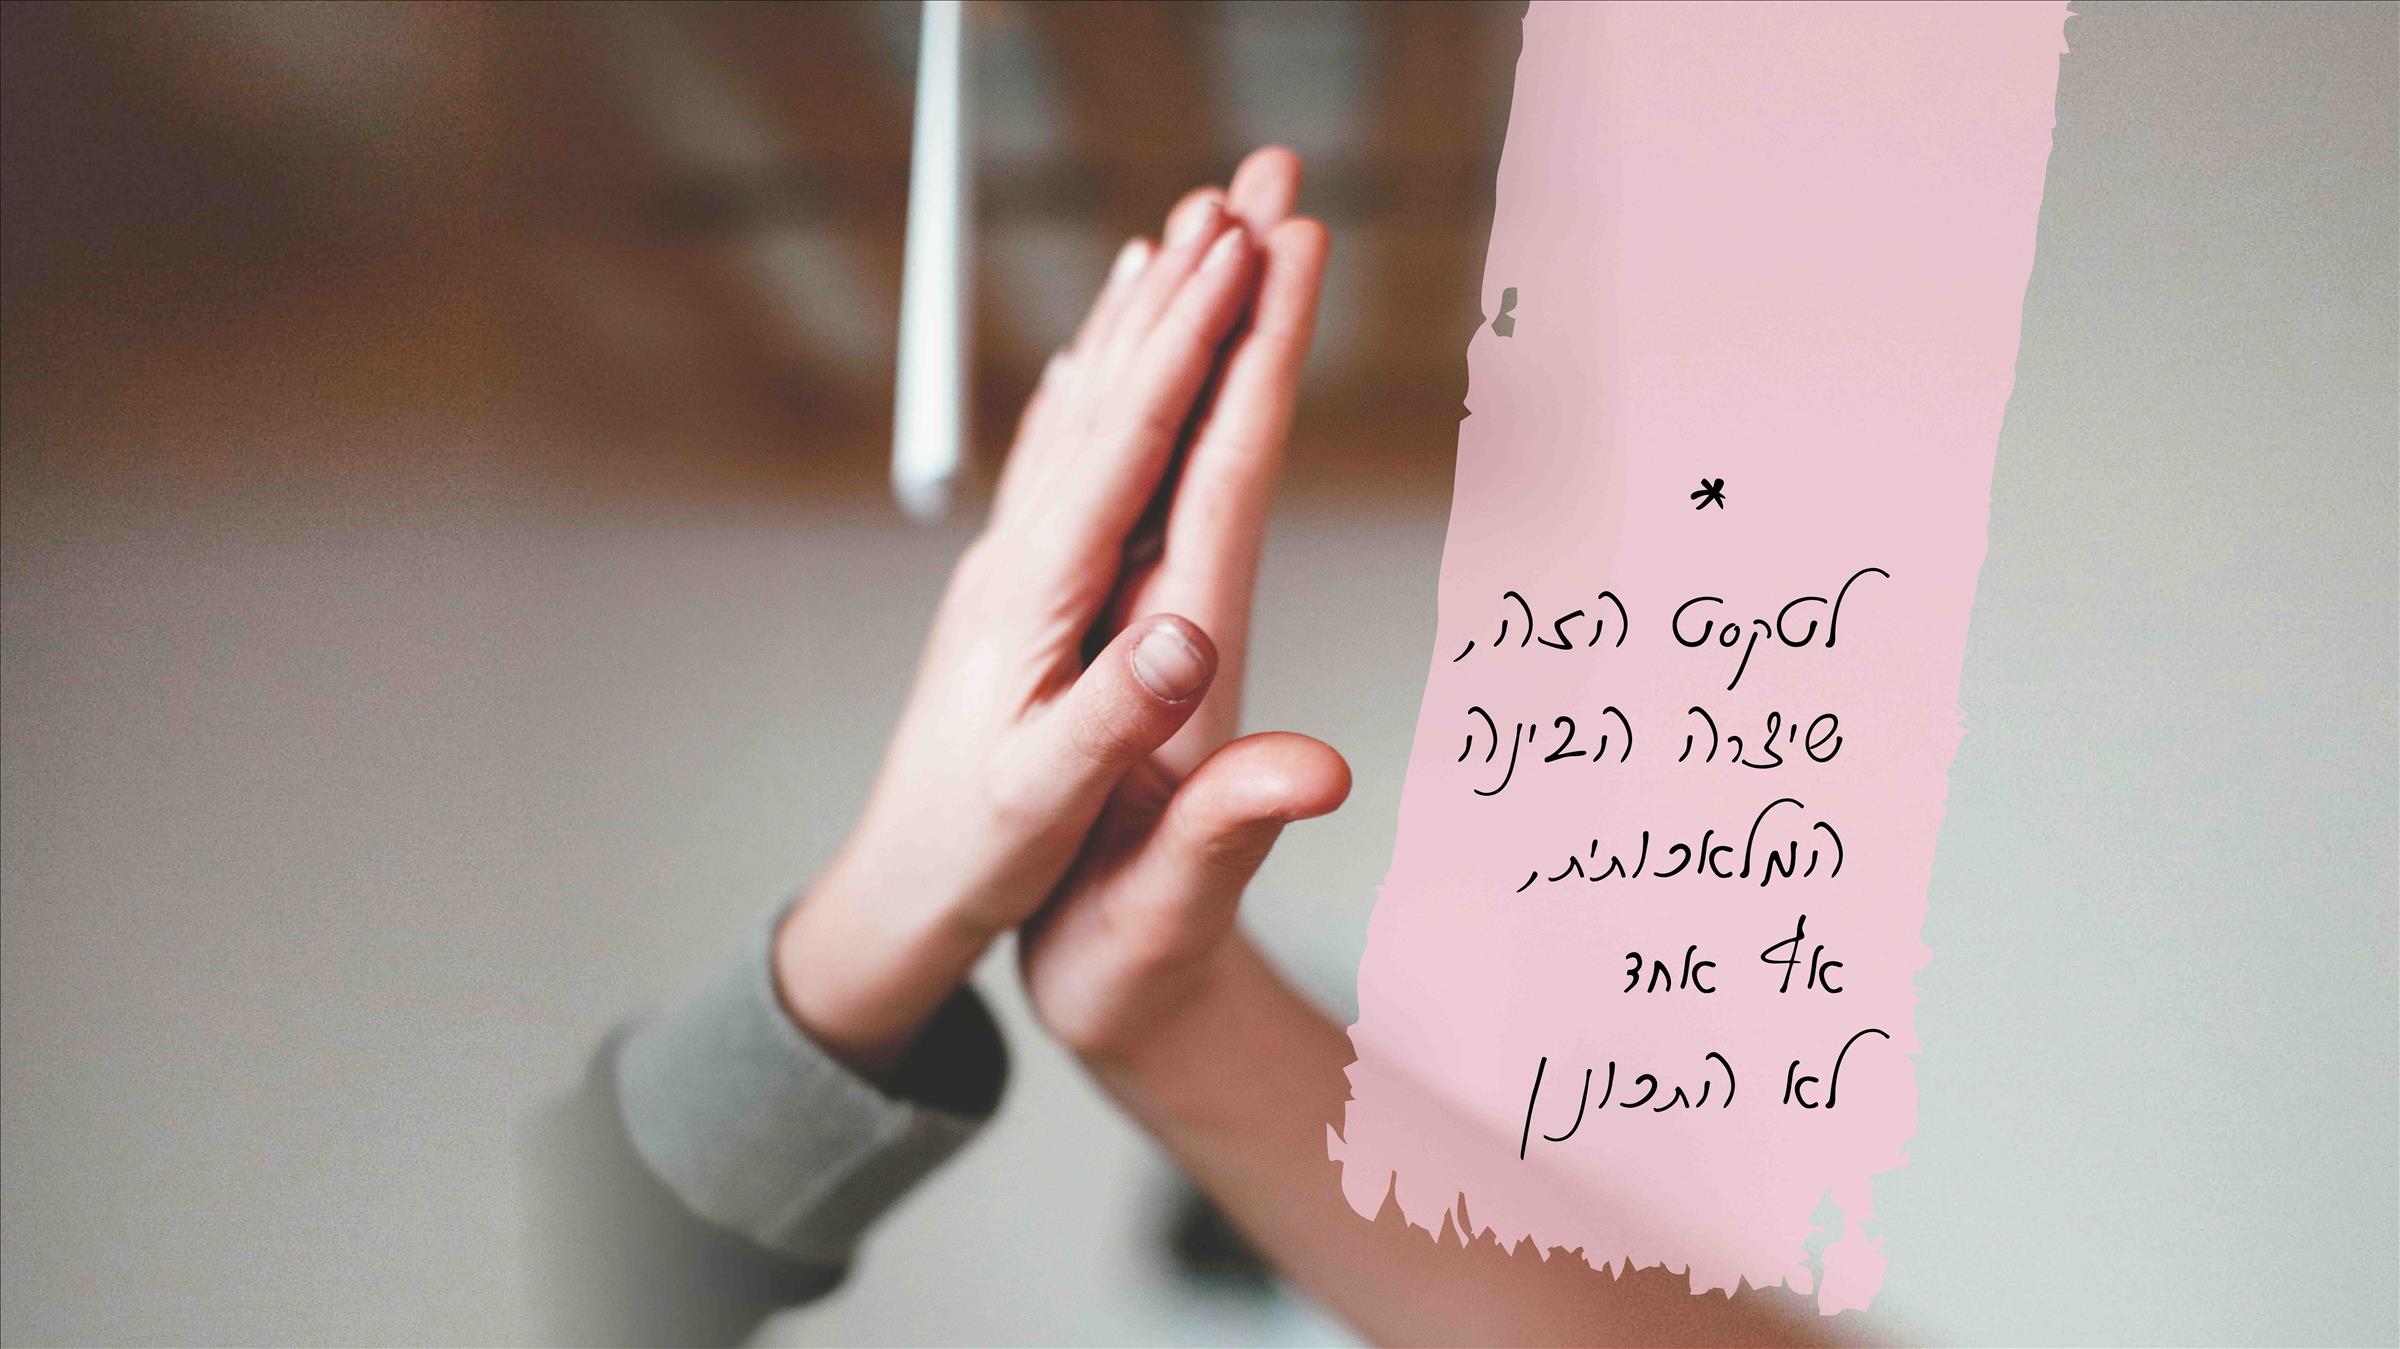 *
לטקסט הזה,
שיצרה הבינה
המלאכותית,
אף אחד
לא התכונן